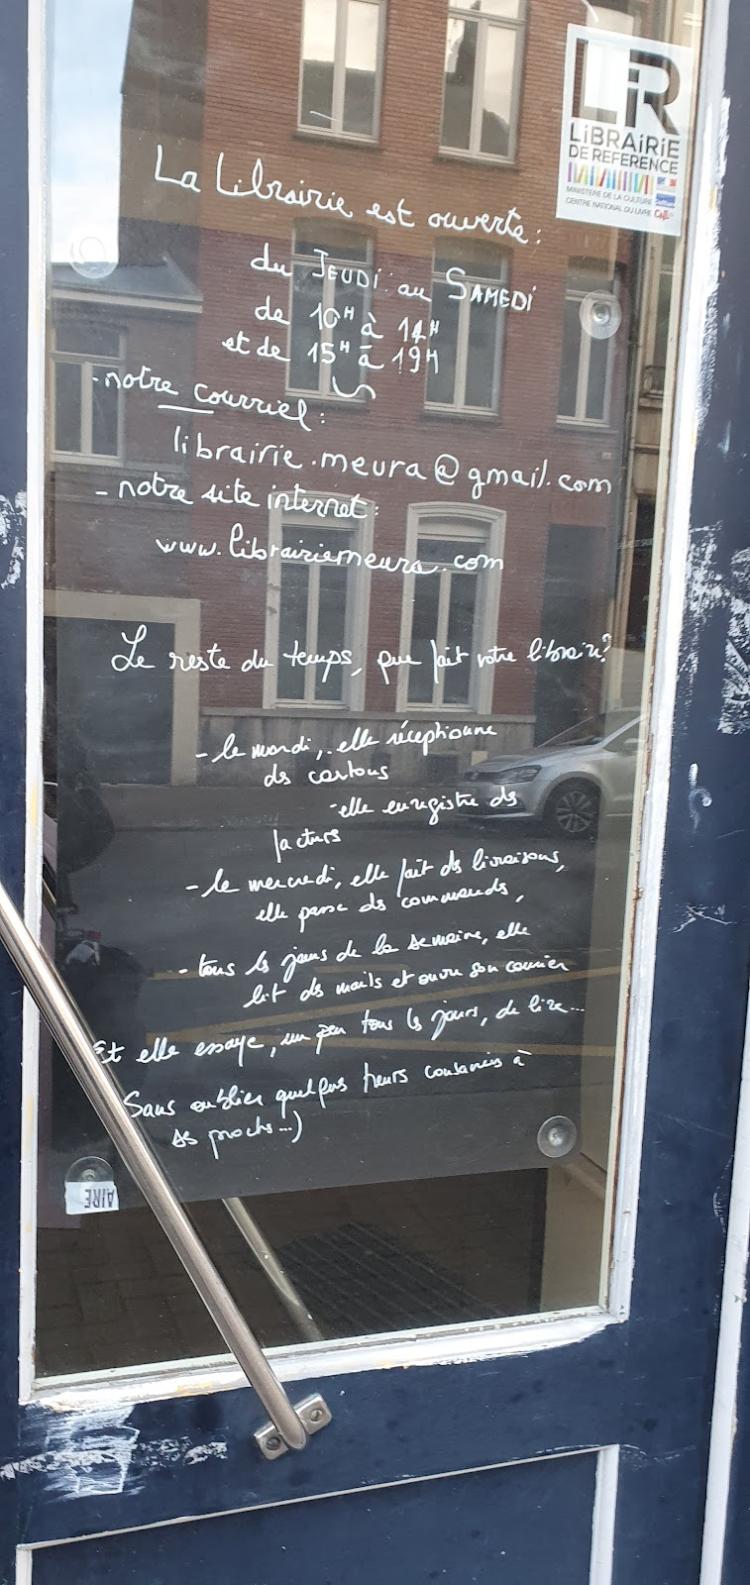 LiR
LiBRAiRiE
DE REFERENCE
MINISTERE DE LA CULTURE
CENTRE NATIONAL DU LIVRE CNL
La Librairie est ouverte :
du JEUDi au SAMEDi
de 10H à 14H
et de 15H à 19H
- notre courriel :
librairie.meura@gmail.com
- notre site internet :
www.librairiemeura.com
Le reste du temps, que fait votre libraire ?
- le mardi, elle réceptionne
des cartons
- elle enregistre des
factures
- le mercredi, elle fait des livraisons,
elle passe des commandes,
- tous les jours de la semaine, elle
lit des mails et ouvre son courrier
Et elle essaye, un peu tous les jours, de lire...
Sans oublier quelques heures consacrées à
ses proches...)
AIRE